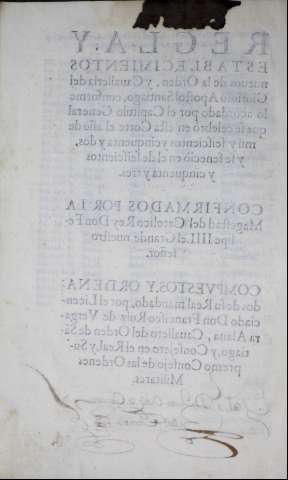 REGLA, Y
ESTABLECIMIENTOS
nueuos de la Orden, y Caualleria del
Glorioso Apostol Santiago, conforme
lo acordado por el Capitulo General
que se celebrò en esta Corte el año de
mil y seiscientos y cinquenta y dos,
y se feneciò en el de seiscientos
y cinquenta y tres.
CONFIRMADOS POR LA
Magestad del Catolico Rey Don Fe-
lipe IIII. el Grande nuestro
señor.
COMPVESTOS, Y ORDENA-
dos de su Real mandado, por el Licen-
ciado Don Francisco Ruiz de Verga-
ra Alaua, Cauallero del Orden de Sã-
tiago, y Consejero en el Real, y Su-
premo Consejo de las Ordenes
Militares.